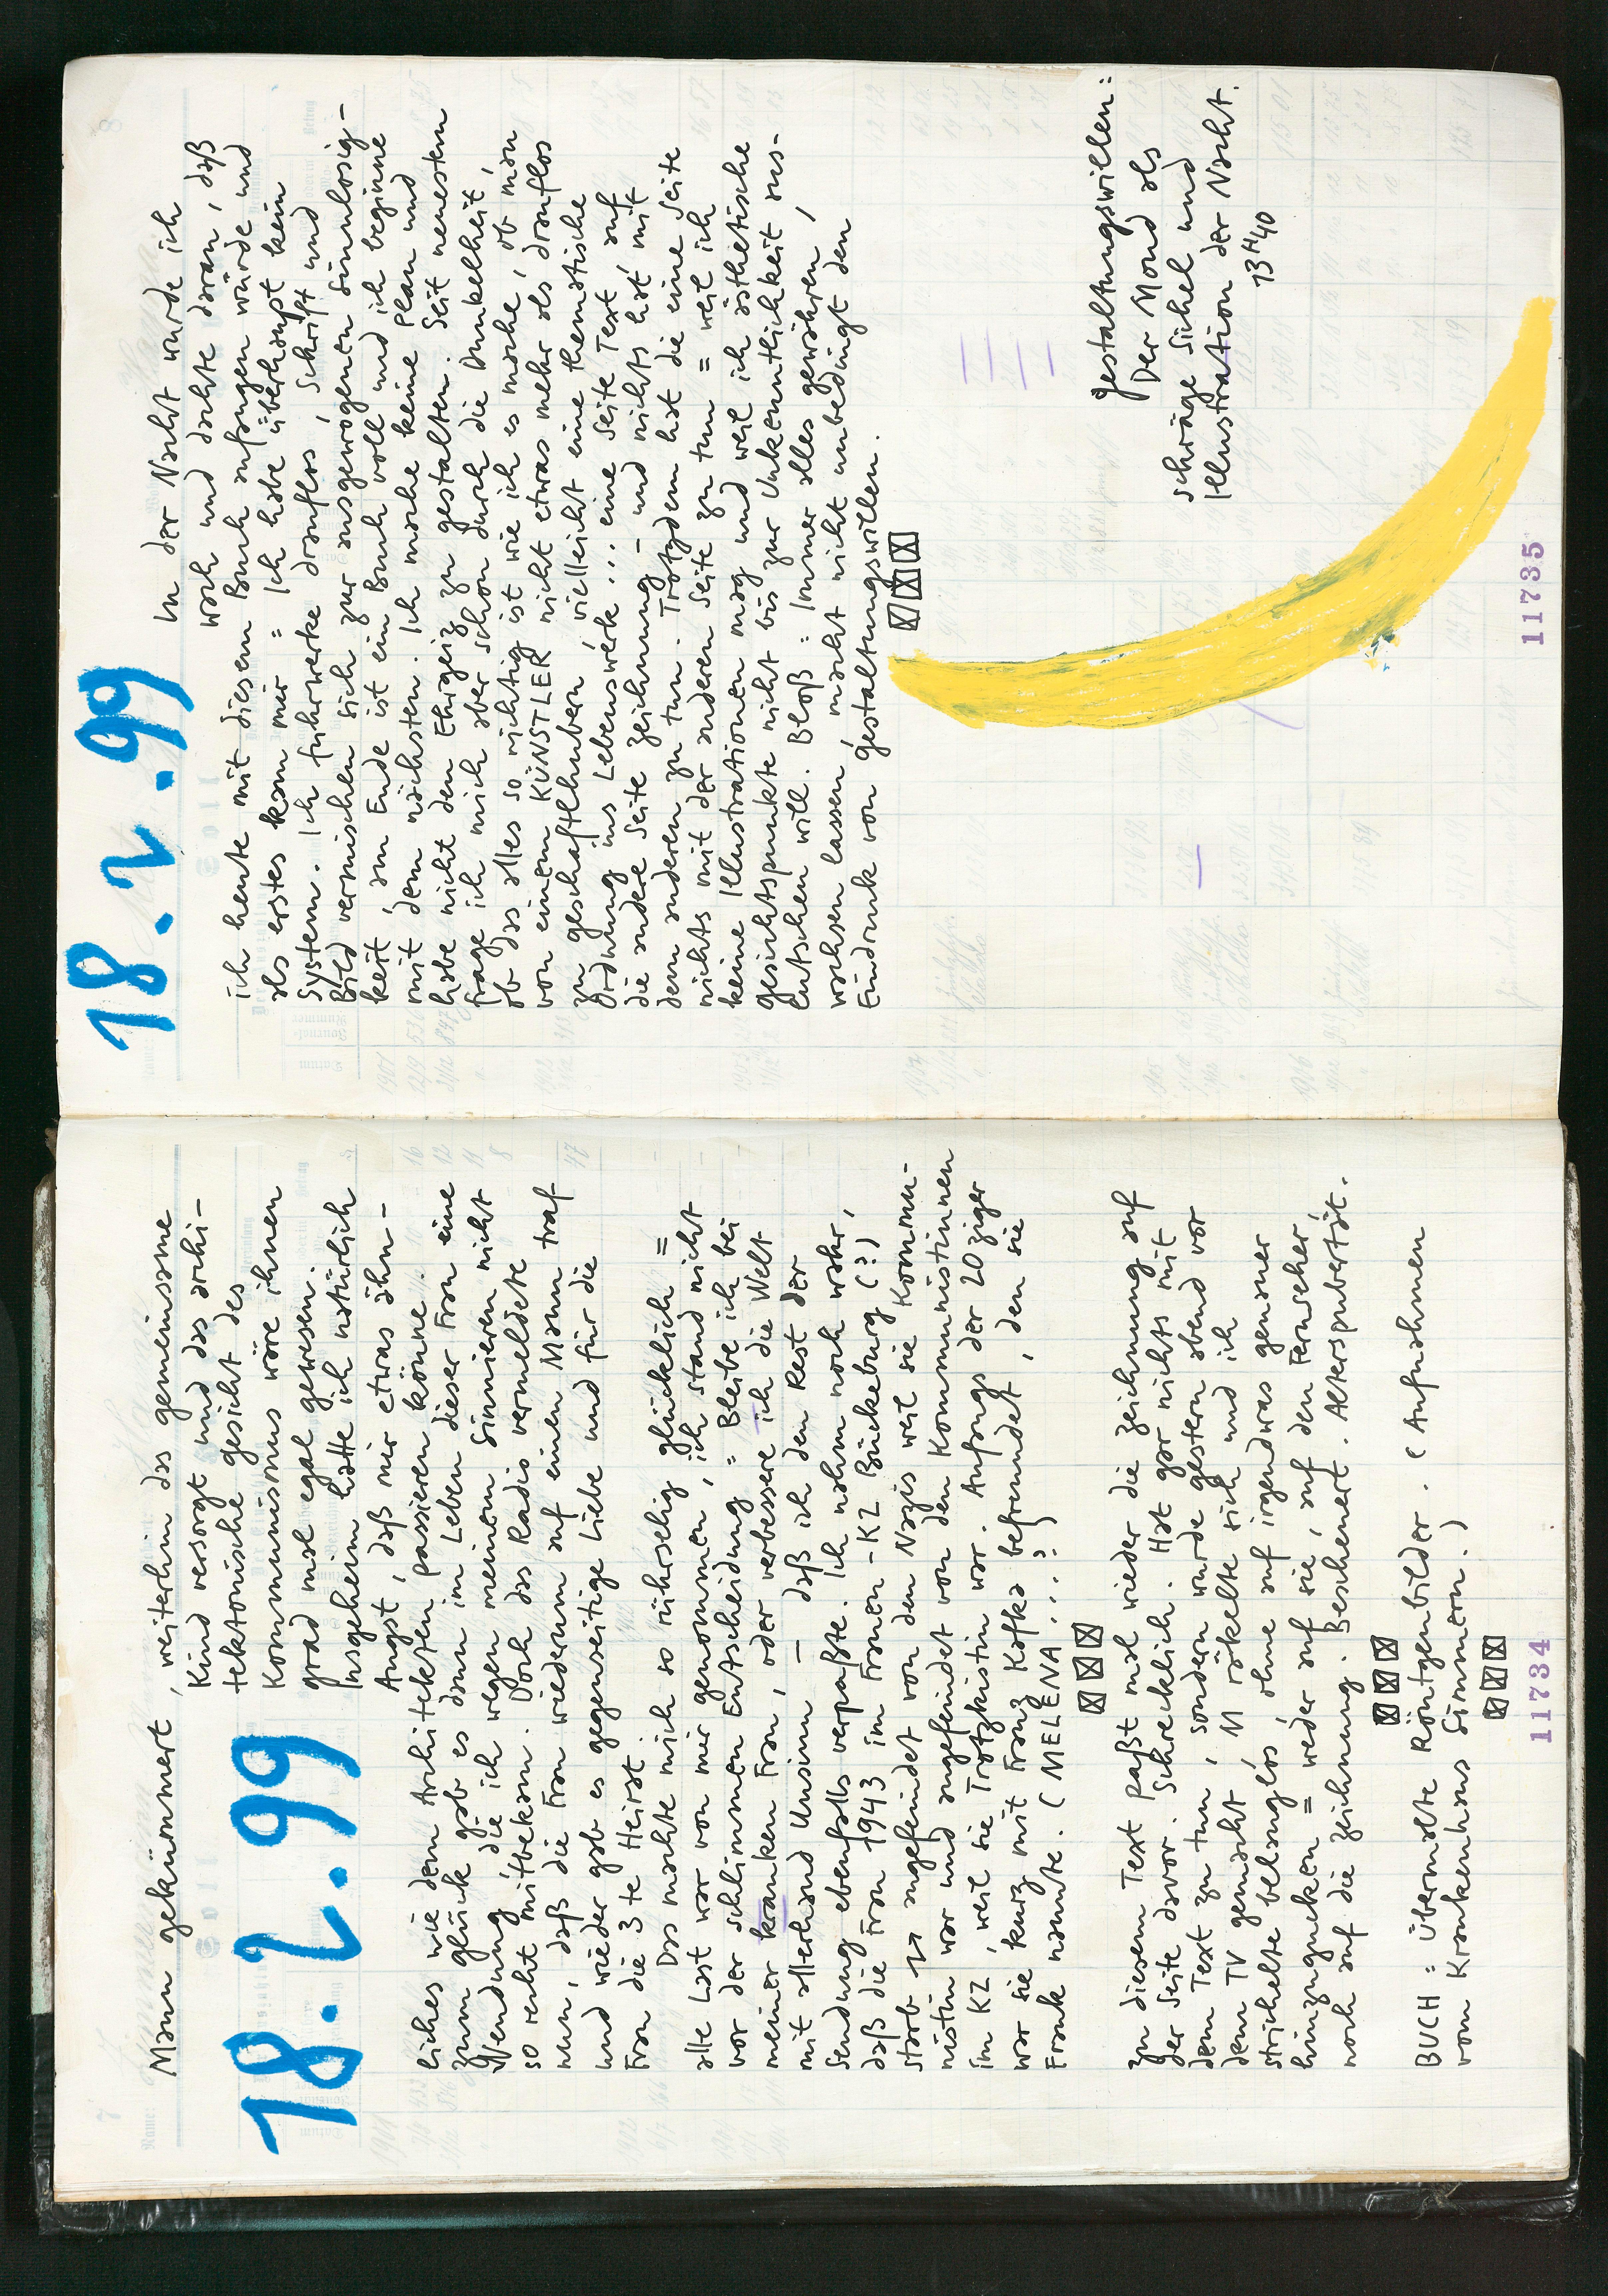 Mann gekümmert, weiterhin das gemeinsame
18.2.99
Kind versorgt und das archi-
tektonische Gesicht des
Kommunismus wäre ihnen
grad mal egal gewesen.
Insgeheim hatte ich natürlich
Angst, daß mir etwas ähn-
liches wie dem Architekten passieren könne.
zum Glück gab es dann im Leben dieser Frau eine
Wendung, die ich wegen meinem Sinnieren nicht
so recht mitbekam. Doch das Radio vermeldete
nun, daß die Frau wiederum auf einen Mann traf
und wieder gab es gegenseitige Liebe und für die
Frau die 3te Heirat.
Das machte mich so rührselig glücklich =
alle Last war von mir genommen, ich stand nicht
vor der schlimmen Entscheidung = Bleibe ich bei
meiner kranken Frau, oder verbessere ich die Welt
mit allerhand Unsinn – daß ich den Rest der
Sendung ebenfalls verpaßte. Ich nahm noch wahr,
daß die Frau 1943 im Frauen-KZ Bückeburg (?)
starb angefeindet von den Nazis weil sie Kommu-
nistin war und angefeindet von den Kommunistinnen
im KZ, weil sie Trotzkistin war. Anfangs der 20ziger
war sie kurz mit Franz Kafka befreundet, den sie
Frank nannte. (MELENA...?)
☒☒☒
zu diesem Text paßt mal wieder die Zeichnung auf
der Seite davor. Schrecklich. Hat gar nichts mit
dem Text zu tun, sondern wurde gestern abend vor
dem TV gemacht, M räkelte sich und ich
strichelte belanglos, ohne auf irgendwas genauer
hinzugucken = weder auf sie, auf den Fernseher,
noch auf die Zeichnung. Bescheuert. Alterspubertät.
☒☒☒
BUCH = Übermalte Röntgenbilder. (Aufnahmen
vom Krankenhaus Simmern.)
☒☒☒
11734
18.2.99
In der Nacht wurde ich
wach und dachte daran, daß
ich heute mit diesem Buch anfangen würde und
als erstes kam mir = Ich habe überhaupt kein
System. Ich fuhrwerke drauflos, Schrift und
Bild vermischen sich zur ausgewogenen Sinnlosig-
keit, am Ende ist ein Buch voll und ich beginne
mit dem nächsten. Ich mache keine Plan und
habe nicht den Ehrgeiz zu gestalten. Seit neuestem
frage ich mich aber schon durch die Dunkelheit,
ob das alles so richtig ist wie ich es mache, ob man
von einem KÜNSTLER nicht etwas mehr als drauflos
zu geschaftlhubern, vielleicht eine thematische
Ordnung ins Lebenswerk ... eine Seite Text, auf
die andere Seite Zeichnung – und nichts hat mit
dem anderen zu tun. Trotzdem hat die eine Seite
nichts mit der anderen Seite zu tun = weil ich
keine Illustrationen mag und weil ich ästhetische
Gesichtspunkte nicht bis zur Unkenntlichkeit aus-
lutschen will. Bloß = Immer alles gewähren,
wachsen lassen, macht nicht unbedingt den
Eindruck von Gestaltungswillen.
☒☒☒
Gestaltungswillen:
Der Mond als
schräge Sichel und
Illustration der Nacht.
13 H 40
11735